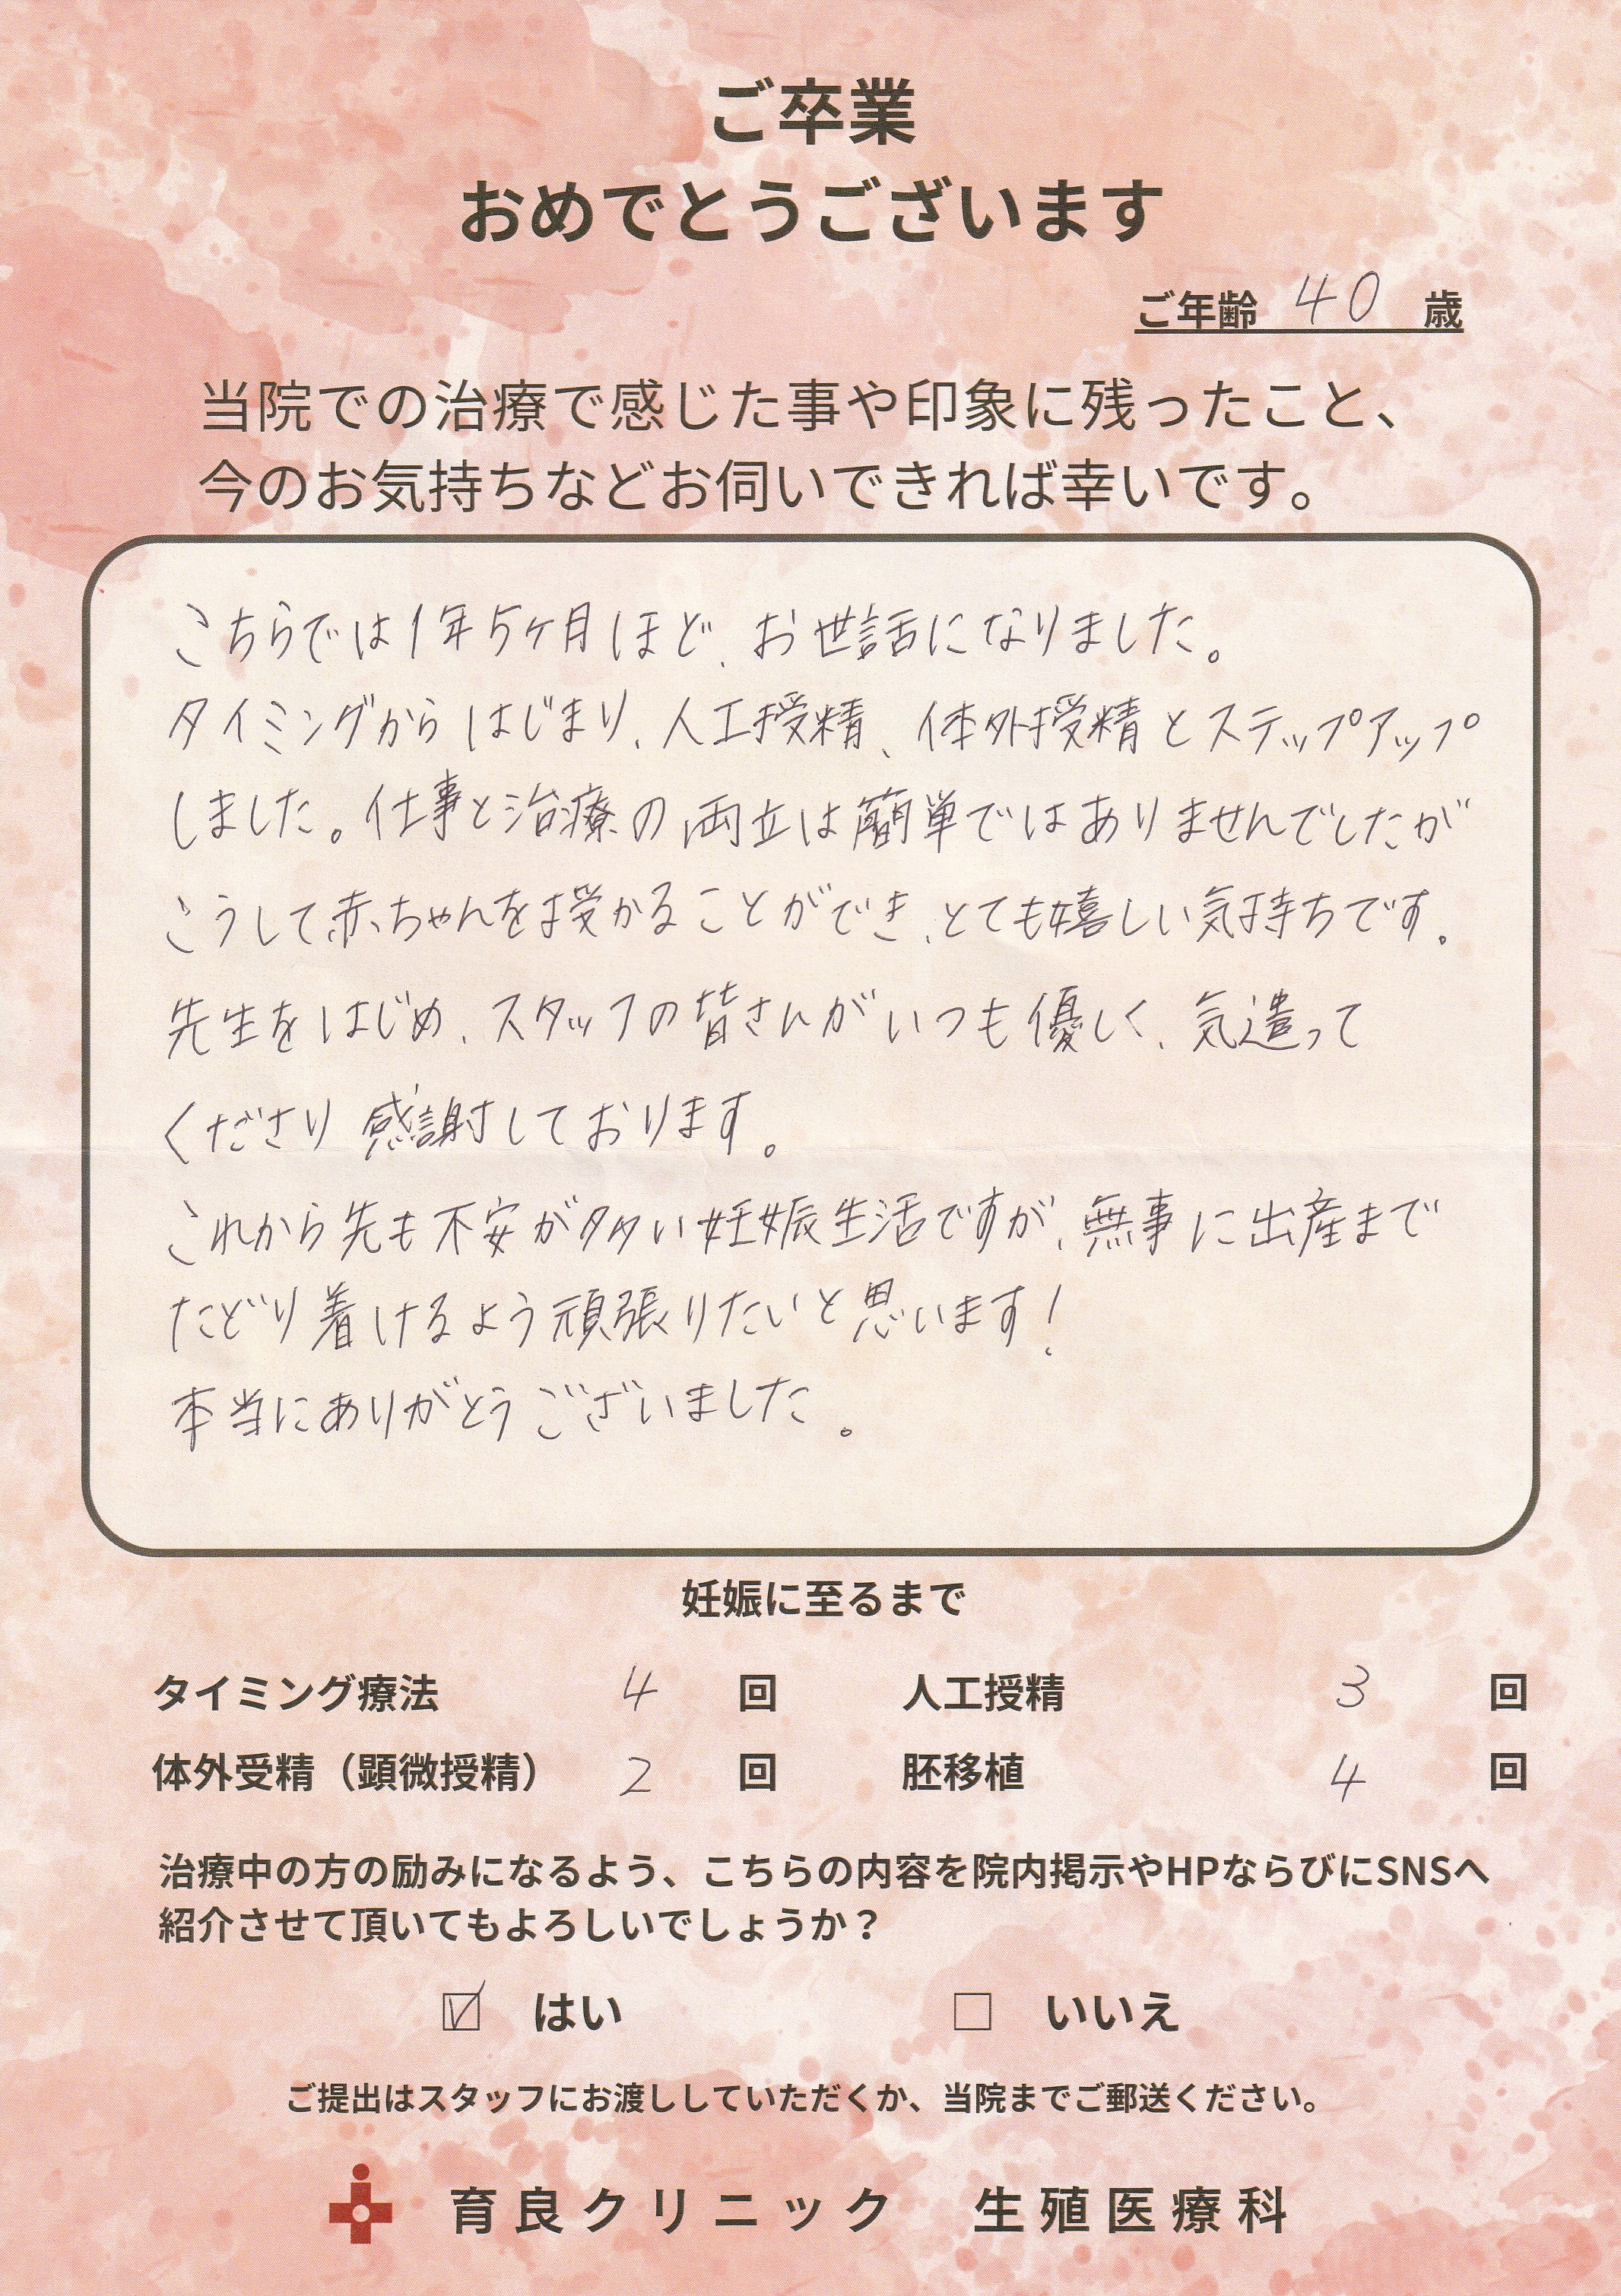 ご卒業
おめでとうございます
ご年齢 40 歳
当院での治療で感じた事や印象に残ったこと、
今のお気持ちなどお伺いできれば幸いです。
こちらでは1年5ヶ月ほど、お世話になりました。
タイミングからはじまり、人工授精、体外授精とステップアップ
しました。仕事と治療の両立は簡単ではありませんでしたが
こうして赤ちゃんを授かることができ、とても嬉しい気持ちです。
先生をはじめ、スタッフの皆さんがいつも優しく、気遣って
くださり 感謝しております。
これから先も不安が多い妊娠生活ですが、無事に出産まで
たどり着けるよう頑張りたいと思います!
本当にありがとうございました。
妊娠に至るまで
タイミング療法 4 回 人工授精 3 回
体外受精（顕微授精） 2 回 胚移植 4 回
治療中の方の励みになるよう、こちらの内容を院内掲示やHPならびにSNSへ
紹介させて頂いてもよろしいでしょうか？
☑ はい ☐ いいえ
ご提出はスタッフにお渡ししていただくか、当院までご郵送ください。
育良クリニック 生殖医療科